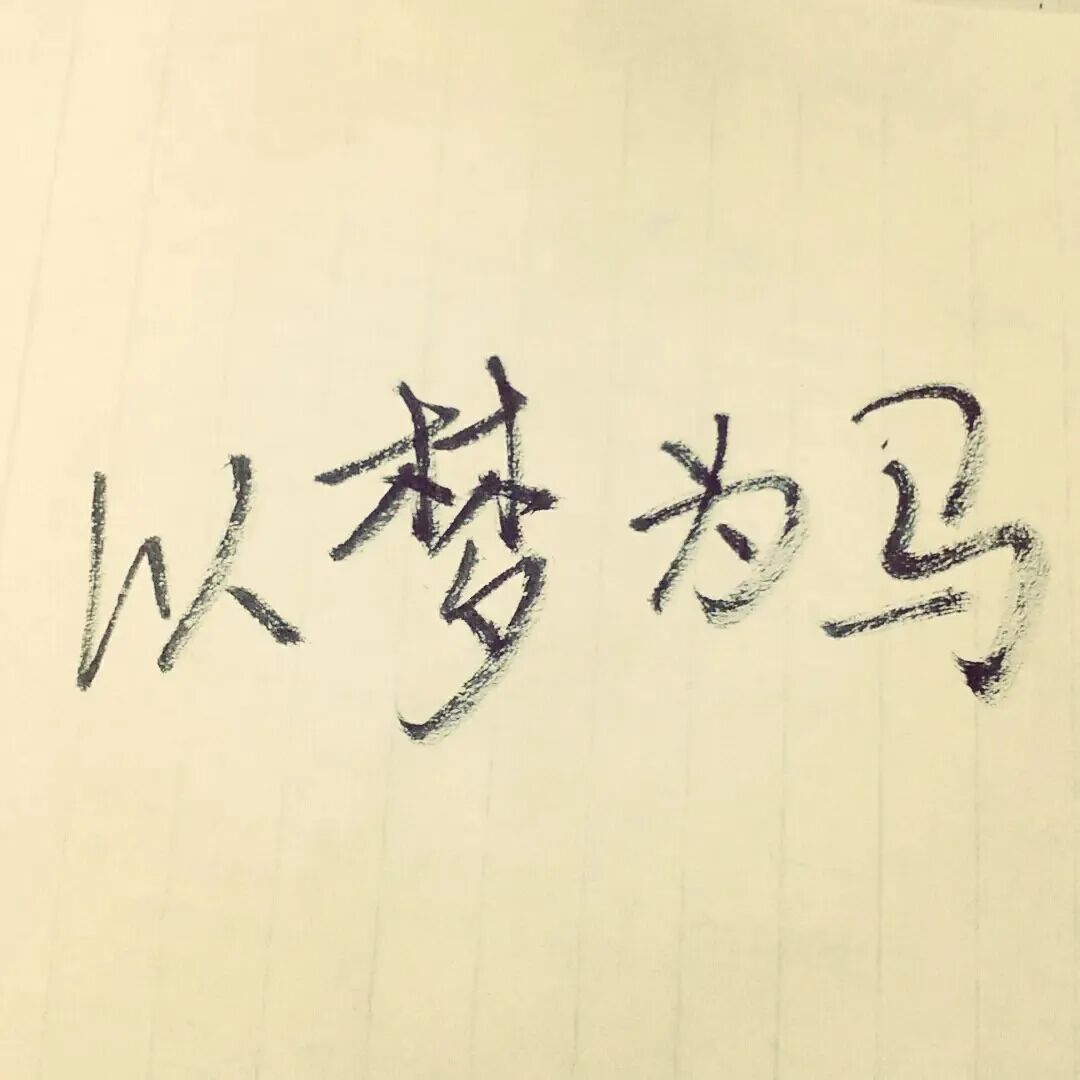 以梦为马